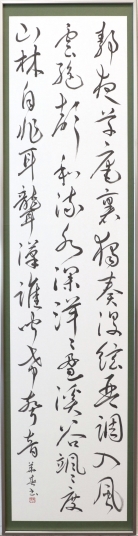 静夜草庵裏獨奏没絃琴調入風
雲絶聲和流水深洋々盈溪谷颯々度
山林自非耳聾漢誰聞希聲音